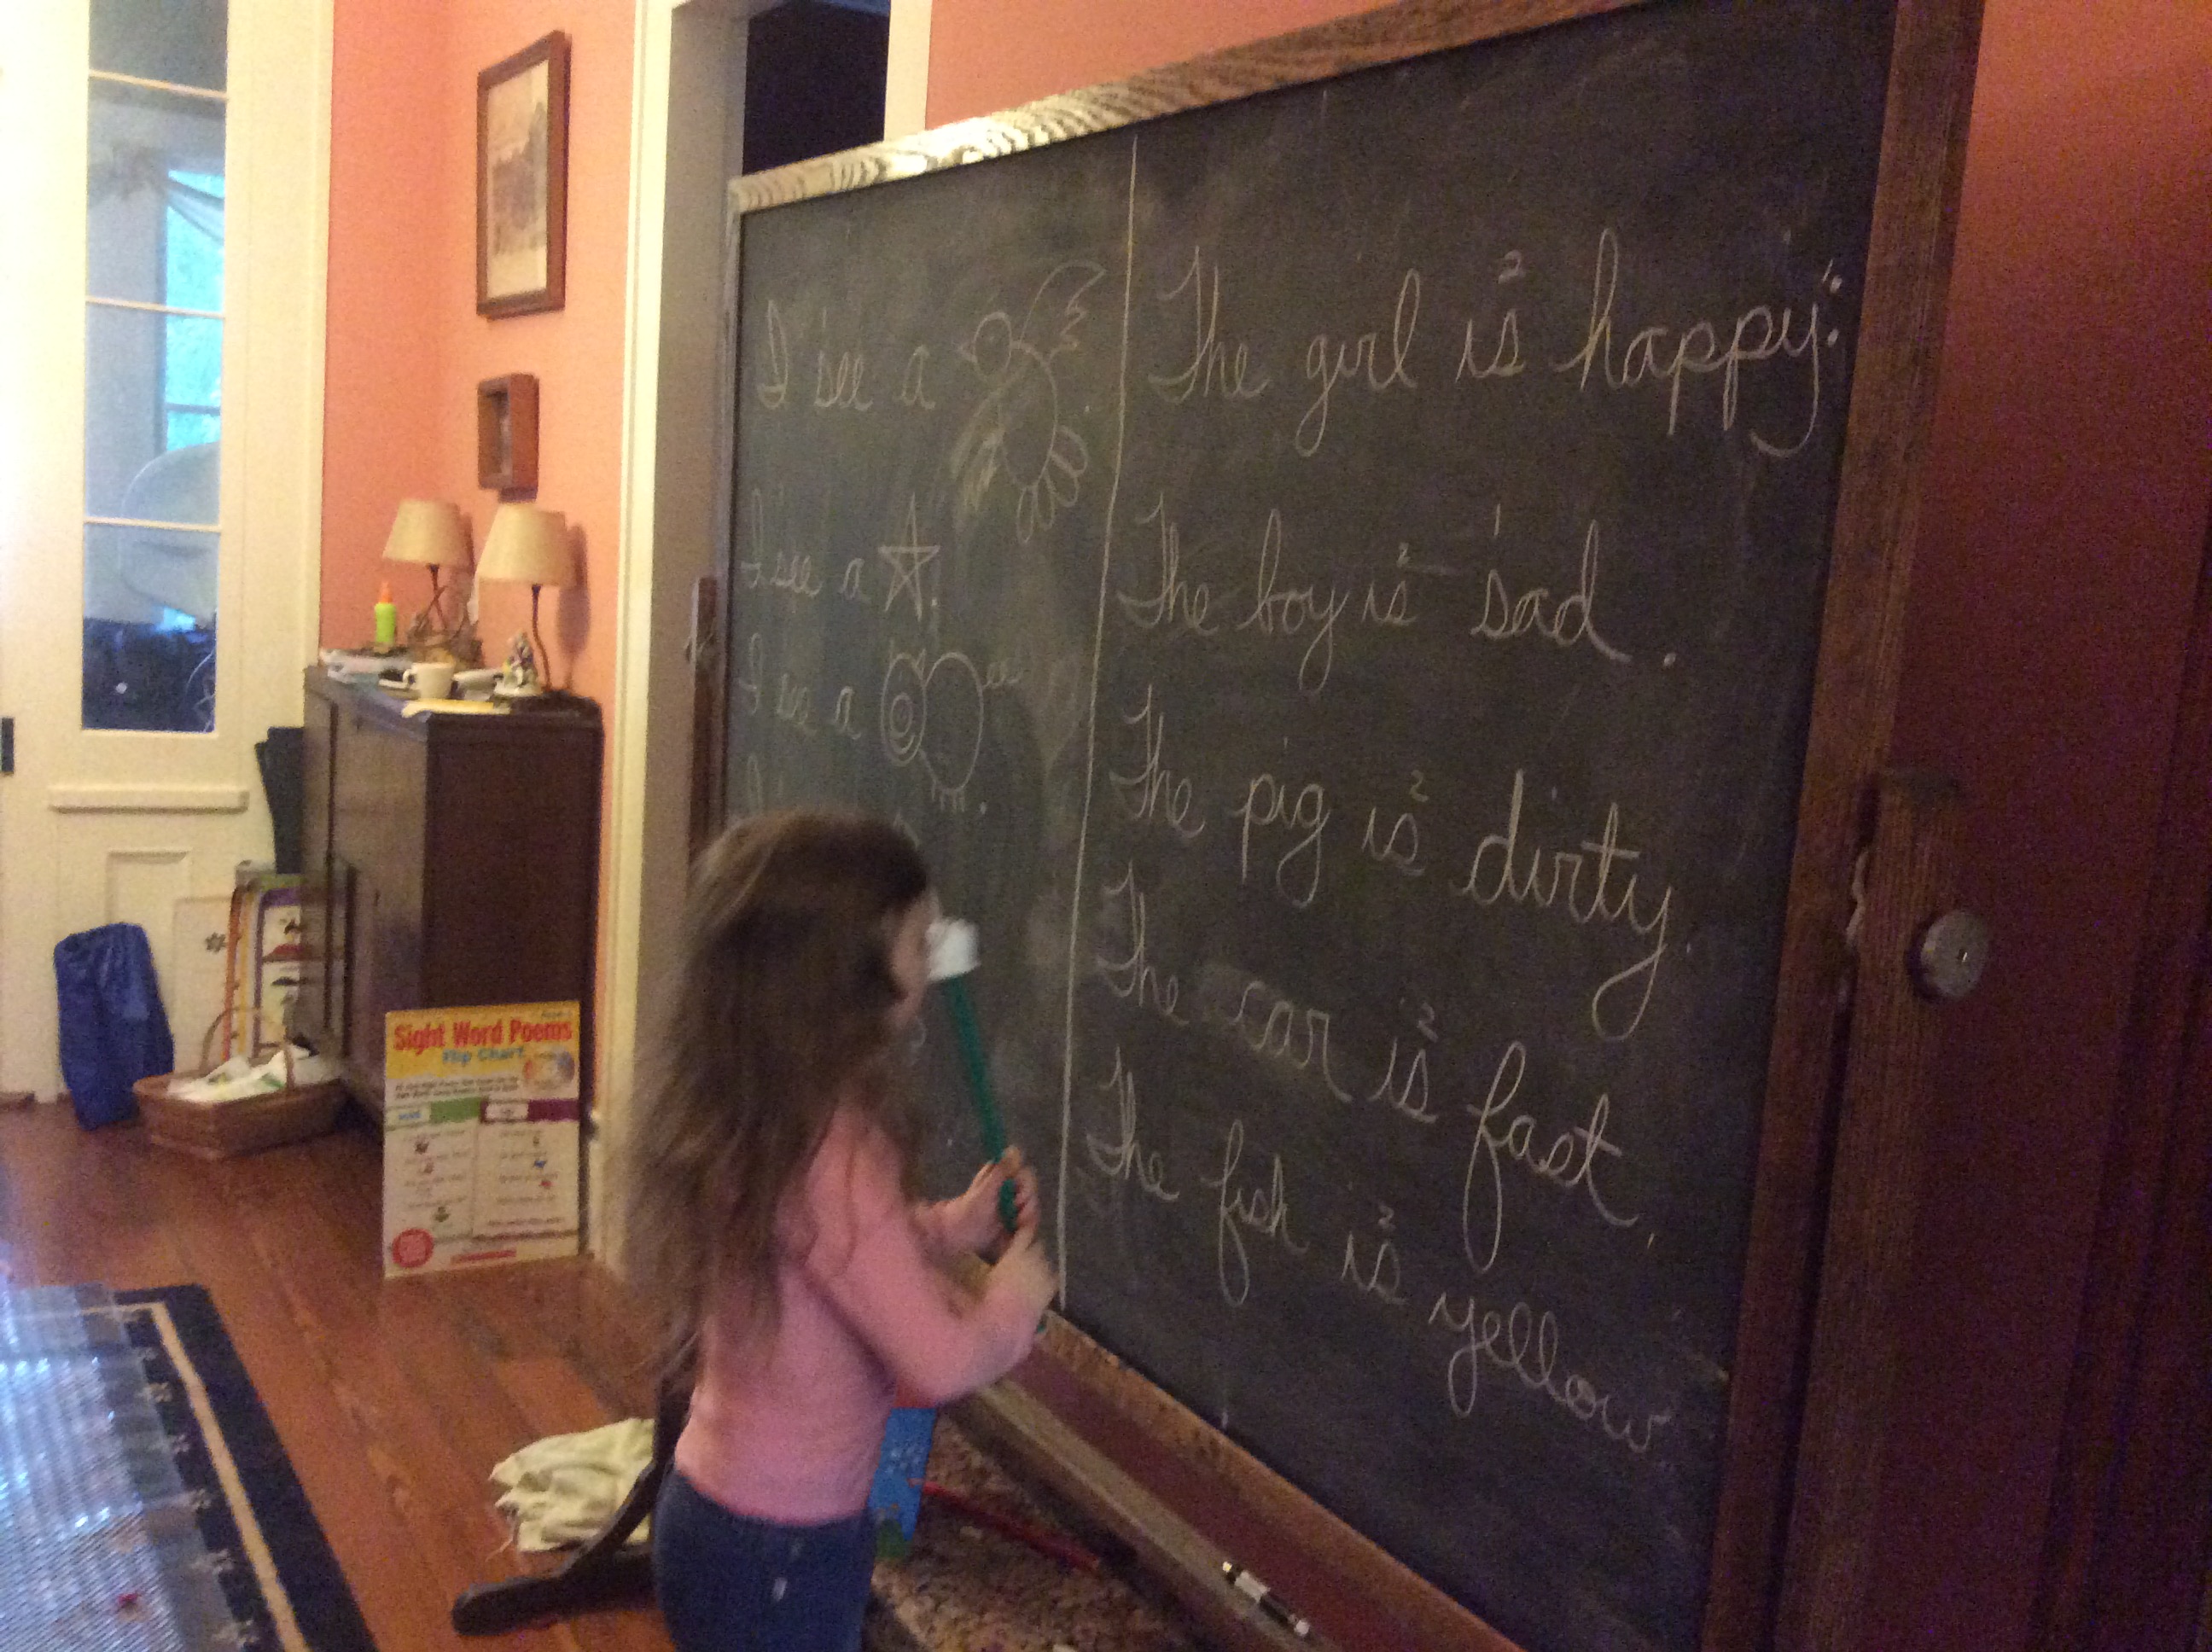 I see a
I see a
I see a
I
The girl is² happy.
The boy is² sad.
The pig is² dirty.
The car is² fast.
The fish is² yellow
Sight Word Poems
Flip Chart